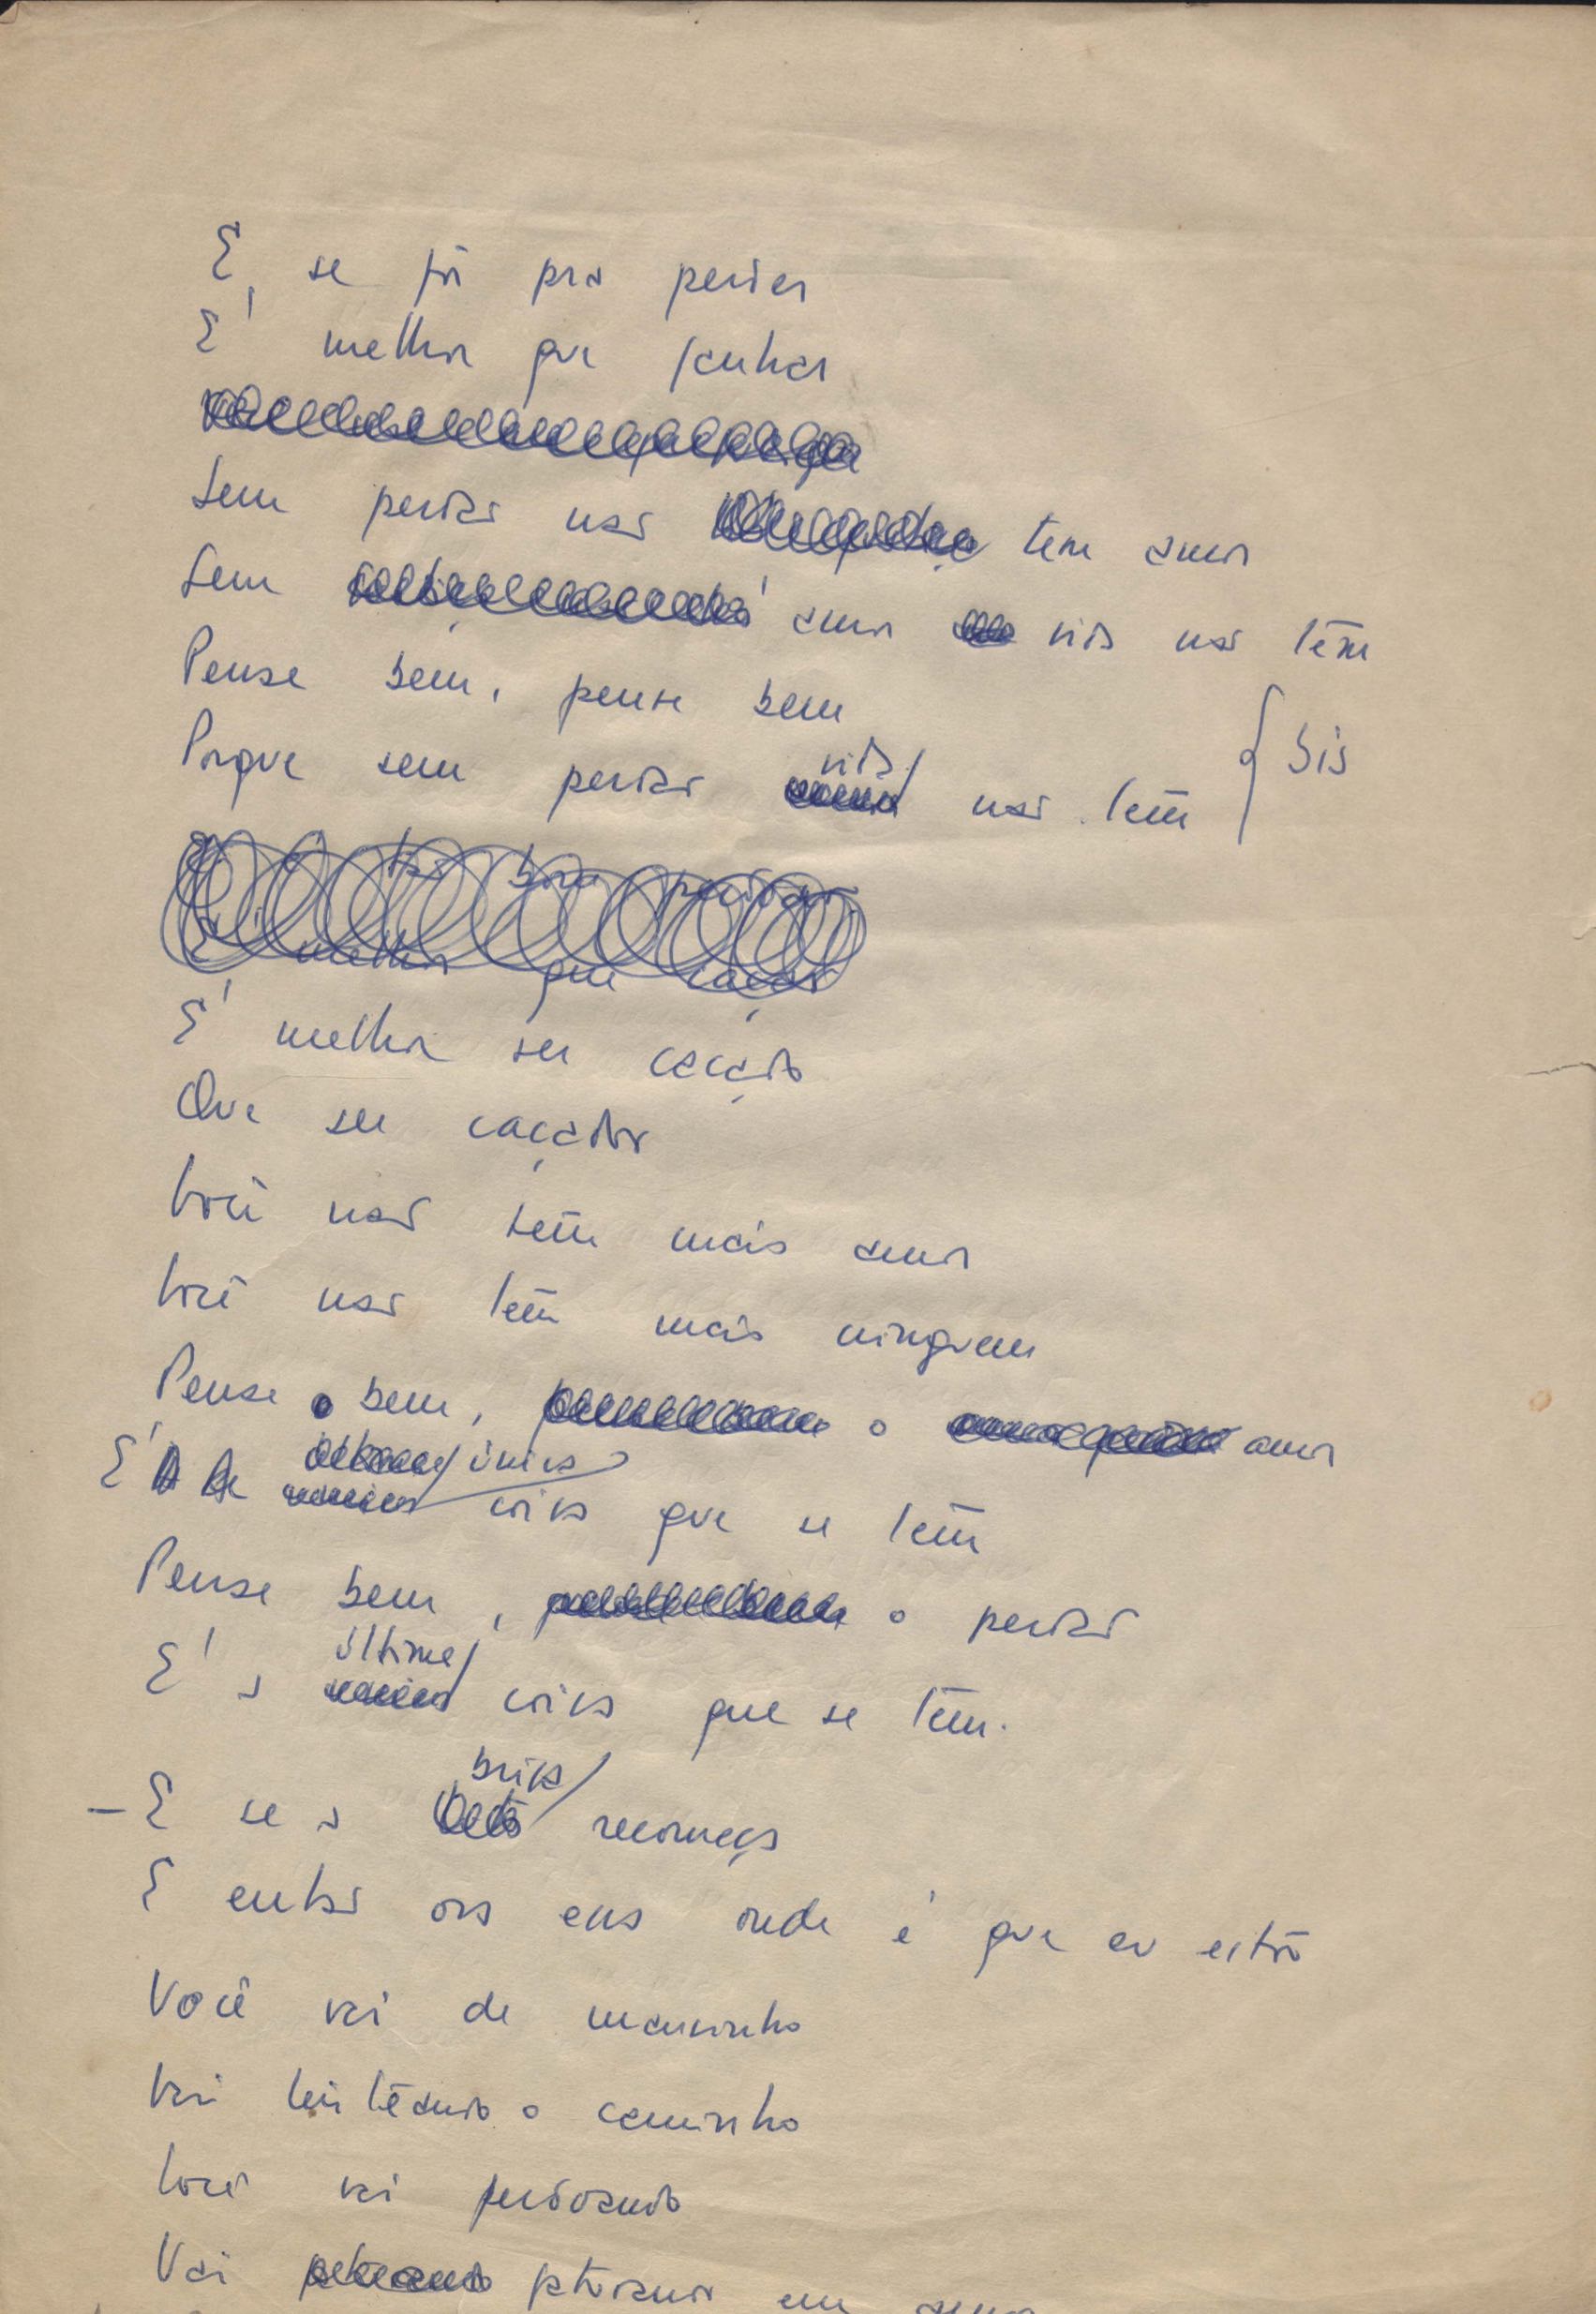 E se fôr pra perder
É melhor que ganhar
Sem perdão não tem amor
Sem amor vida não têm
Pense bem, pense bem
Porque sem perdão vida não tem
bis
tão bom perdoar
É melhor que caçar
É melhor ser caçado
Que ser caçador
Você não tem mais amor
Você não tem mais ninguem
Pense bem, o amor
É a única coisa que se tem
Pense bem, o perdão
É a última coisa que se tem.
— E se a briga recomeça
E então ora essa onde é que eu estou
Você vai de mansinho
Vai tenteando o caminho
Você vai perdoando
Vai em amor